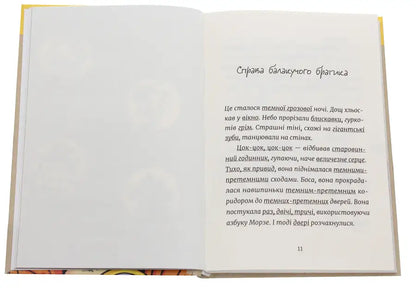 Справа балакучого братика
Це сталося темної грозової ночі. Дощ хльос-
кав у вікно. Небо прорізали блискавки, гурко-
тів грім. Страшні тіні, схожі на гігантські
зуби, танцювали на стінах.
Цок-цок, цок-цок — відбивав старовин-
ний годинник, гупаючи, наче величезне серце.
Тихо, як привид, вона піднімалася темними-
претемними сходами. Боса, вона прокрада-
лася навшпиньки темним-претемним ко-
ридором до темних-претемних дверей. Вона
постукала раз, двічі, тричі, використовуючи
азбуку Морзе. І тоді двері розчахнулися.
11